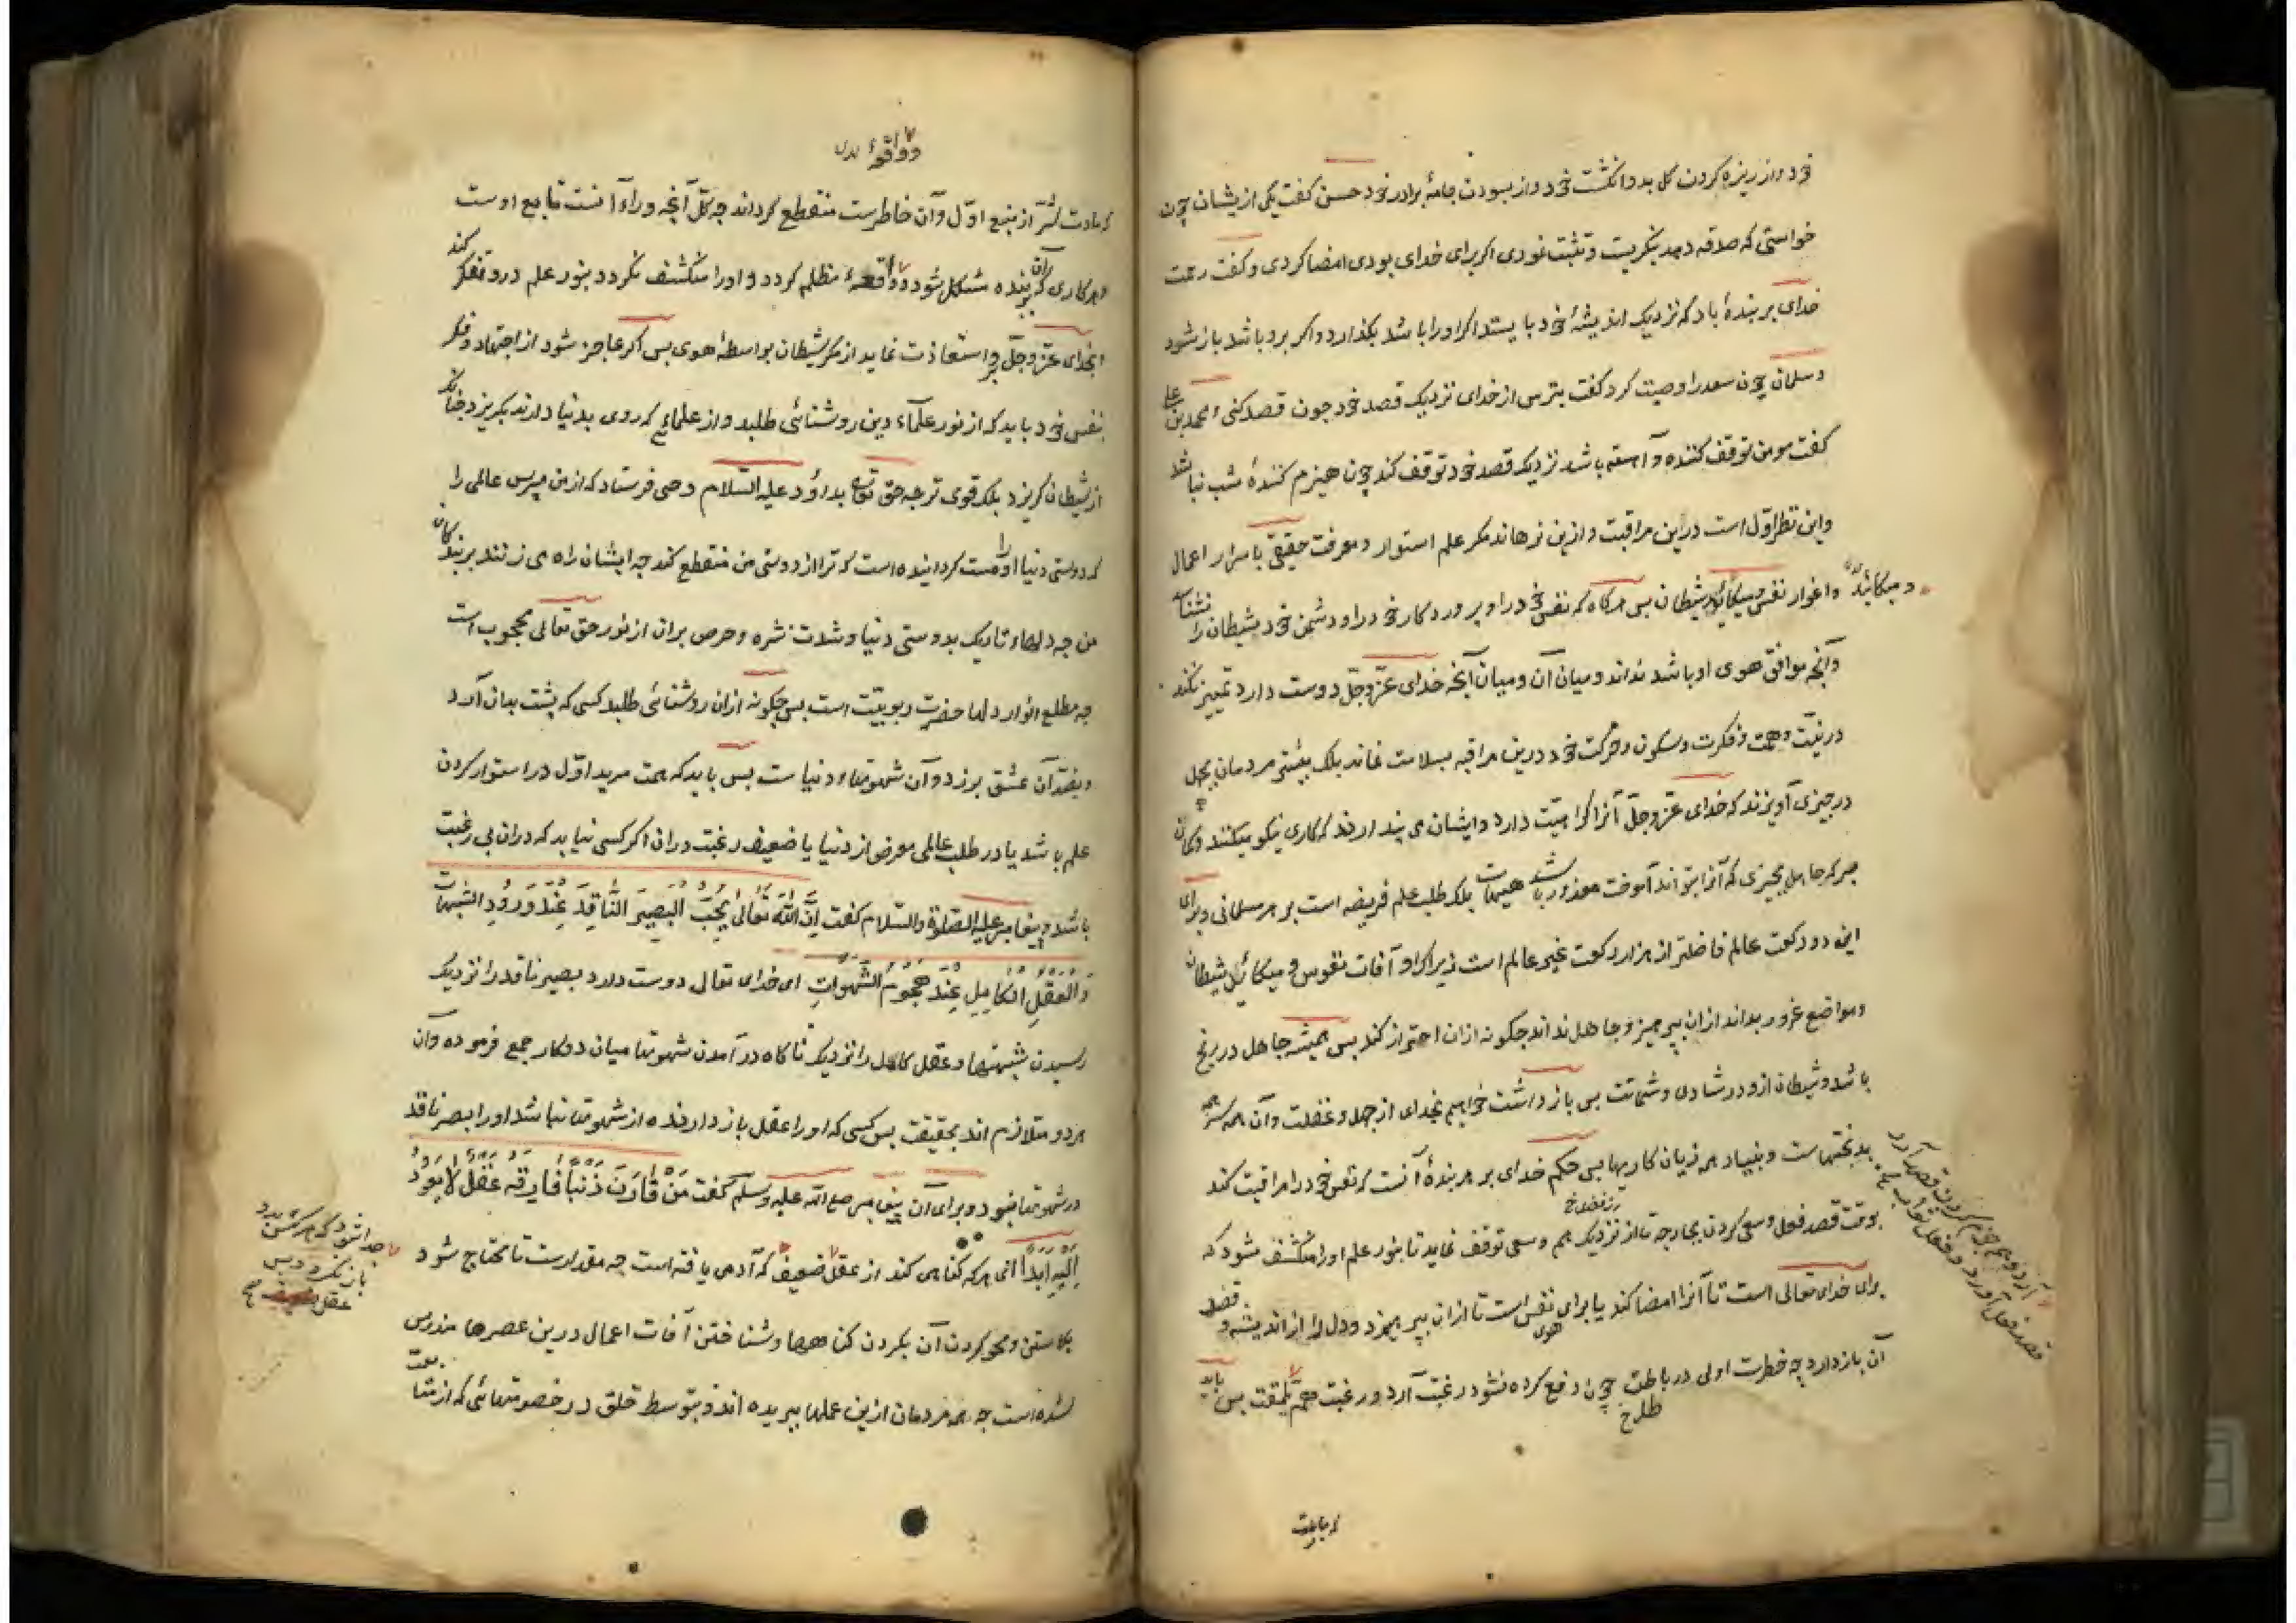 خود و از ریزه کردن کل بدو انکشت خود و از بسودن جامهٔ برادر خود حسن کفت یکی از یشان چون
خواستی که صدقه دهد بنکریست و تثبت نمودی اکر برای خدای بودی امضا کردی و کفت رحمت
خدای بر بندهٔ باد که نزدیک اندیشهٔ خود بایستد اکر او را باشد بکذارد و اکر برو باشد باز شود
و سلمان چون سعد را وصیت کرد کفت بترس از خدای نزدیک قصد خود چون قصد کنی و محمد بن علی
کفت مومن توقف کننده و آهسته باشد نزدیک قصد خود توقف کند چون هیزم کنندهٔ شب نباشد
و این نظر اول است در این مراقبت و ازین نرهاند مکر علم استوار و معرفت حقیقی با سرار اعمال
و اغوار نفس و میکائد شیطان بس هرکاه که نفس خود را و پروردکار خود را و دشمن خود شیطان را نشناسد
و میکاید
و آنچه موافق هوی او باشد نداند و میان آن و میان آنچه خدای عزّ و جلّ دوست دارد تمییز نکند
در نیّت و همّت و فکرت و سکون و حرکت خود درین مراقبه بسلامت نماند بلک بیشتر مردمان بجهل
در چیزی آویزند که خدای عزّ و جلّ آنرا کراهیّت دارد و ایشان می پندارند که کاری نیکو میکنند و کمان
مبر که جاهل بچیزی که آنرا بتواند آموخت معذور باشد هیهات بلک طلب علم فریضه است بر هر مسلمانی و برای
این دو رکعت عالم فاضلتر از هزار رکعت غیر عالم است زیراکه او آفات نفوس و میکائد شیطان
و مواضع غرور بداند از ان بپرهیزد و جاهل نداند چکونه ازان احتراز کند بس همیشه جاهل در رنج
باشد و شیطان ازو در شادی و شماتت بس باز داشت خواهیم بخدای از جهل و غفلت و آن همه سر همه
بدبختیهاست و بنیاد همه زیان کاریها بس حکم خدای بر هر بندهٔ آنست که نفس خود را مراقبت کند
بوقت قصد فعل و سعی کردن بجارحه تا از نزدیک هم و سعی توقف نماید تا بنور علم او را منکشف شود که
برای خدای تعالی است تا آنرا امضا کند یا برای هوی نفس است تا ازان بپرهیزد و دل را از اندیشه و قصد
آن باز دارد چه خطرت اولی در باطل چون دفع کرده نشود رغبت آرد و رغبت همّ بس باید
قصد فعل آورد و فعل
و واقعهٔ
که مادت شرّ از منبع اوّل و آن خاطرست منقطع کرداند چه کلّ آنچه وراء آنست تابع اوست
و هر کاری که بران بنده مشکل شود و واقعهٔ مظلم کردد و او را منکشف نکردد بنور علم درو تفکر کند
و بخدای عزّ و جلّ استعاذت نماید از مکر شیطان بواسطهٔ هوی بس اکر عاجز شود از اجتهاد و فکر
بنفس خود باید که از نور علماء دین روشنائی طلبد و از علمائی که روی بدنیا دارند بکریزد چنانک
از شیطان کریزد بلک قوی تر چه حق تعالی بداؤد علیه السّلام وحی فرستاد که از من مپرس عالمی را
که دوستی دنیا او را مست کردانیده است که ترا از دوستی من منقطع کند چه ایشان راه می زنند بر بندکان
من چه دلهاء تاریک بدوستی دنیا و شدت شره و حرص بران از نور حق تعالی محجوب است
چه مطلع انوار دلها حضرت ربوبیّت است بس چکونه ازان روشنائی طلبد کسی که پشت بدان آرد
و بضدّ آن عشق برزد و آن شهوتهاء دنیاست بس باید که همت مرید اوّل در استوار کردن
علم باشد یا در طلب عالمی معرض از دنیا یا ضعیف رغبت دران اکر کسی نیابد که دران بی رغبت
باشد و پیغامبر علیه الصلوة والسّلام کفت اِنَّ اللّٰهَ تَعَالٰی یُحِبُّ الْبَصِیرَ النَّاقِدَ عِنْدَ وُرُودِ الشُّبُهَاتِ
وَالْعَقْلَ الْکَامِلَ عِنْدَ هُجُوْمِ الشَّهَوَاتِ ای خدای تعالی دوست دارد بصیر ناقد را نزدیک
رسیدن شبهتها و عقل کامل را نزدیک ناکاه در آمدن شهوتها میان دو کار جمع فرموده و آن
هر دو متلازم اند بحقیقت بس کسی که او را عقل باز دارنده از شهوتها نباشد او را بصر ناقد
در شبهتها نبود و برای آن پیغامبر صلع الله علیه وسلم کفت مَنْ قَارَنَ ذَنْباً فَارَقَهُ عَقْلٌ لَا یَعُوْدُ
اِلَیْهِ اَبَدًا ای هر که کناهی کند از عقل ضعیف که آدمی یافته است چه مقدارست تا محتاج شود
جدا شود که هرکس بدو
باز نکردد بس
عقل ضعیف
بکاستن و محو کردن آن بکردن کناهها و شناختن آفات اعمال درین عصرها مندرس
شده است چه همه مردمان ازین علمها ببریده اند و بتوسط خلق در خصومتهائی که از متابعت